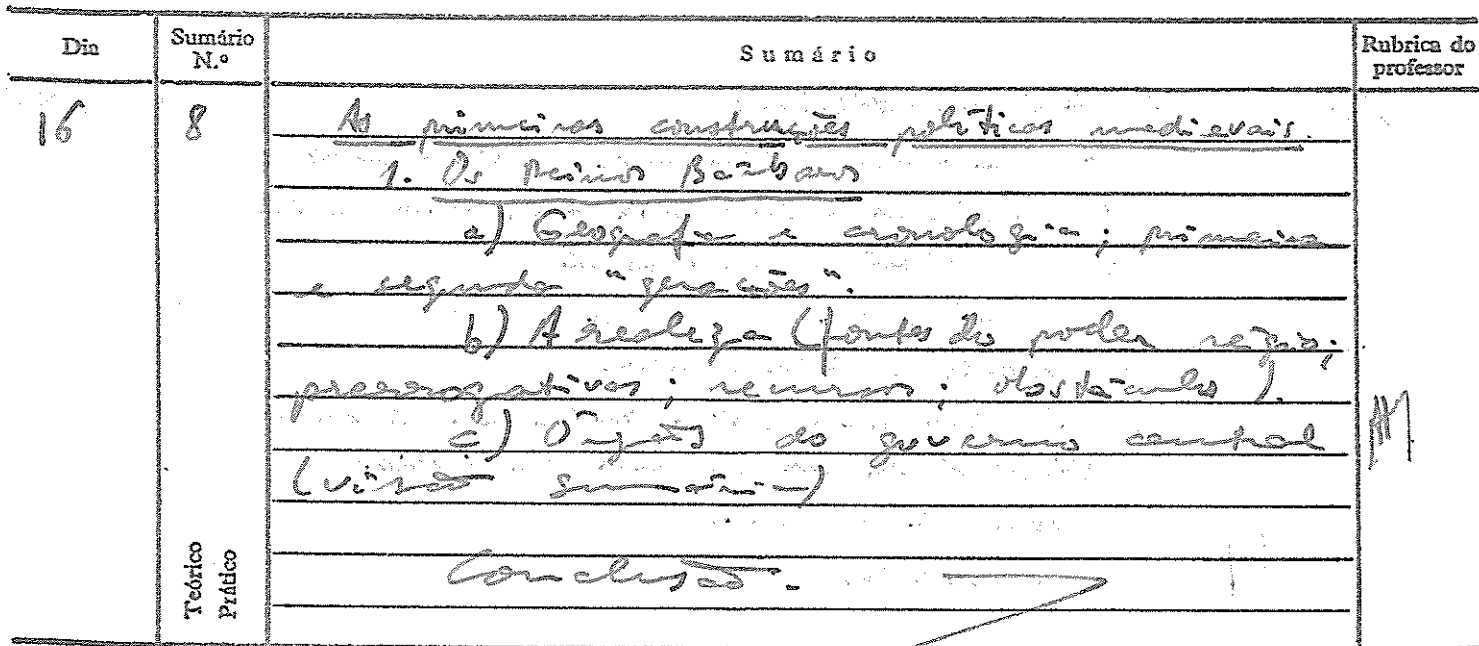 Dia Sumário N.º Sumário Rubrica do professor
16 8 As primeiras construções políticas medievais.
1. Os Reinos Bárbaros
a) Geografia e cronologia; primeira
e segunda "gerações".
b) A realeza (fontes do poder régio;
prerrogativas; recursos; obstáculos).
c) Órgãos do governo central
(visão sumária)
Conclusão.
Teórico
Prático